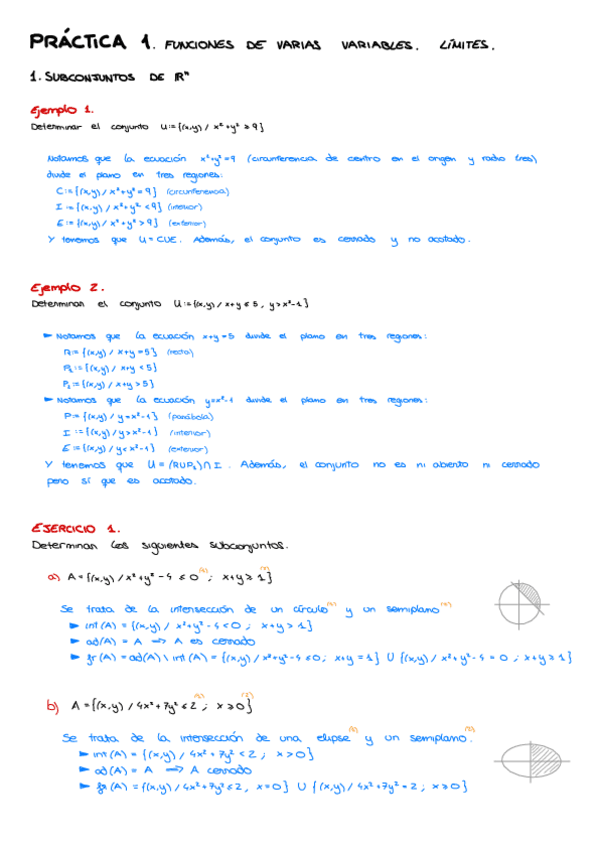 PRÁCTICA 1. FUNCIONES DE VARIAS VARIABLES. LÍMITES.
1. SUBCONJUNTOS DE ℝⁿ
Ejemplo 1.
Determinar el conjunto U:={(x,y) / x²+y² ≥ 9}
Notamos que la ecuación x²+y²=9 (circunferencia de centro en el origen y radio tres)
divide el plano en tres regiones:
C:={(x,y) / x²+y²=9} (circunferencia)
I:={(x,y) / x²+y²<9} (interior)
E:={(x,y) / x²+y²>9} (exterior)
Y tenemos que U=C∪E. Además, el conjunto es cerrado y no acotado.
Ejemplo 2.
Determinar el conjunto U:={(x,y) / x+y ≤ 5, y>x²-1}
► Notamos que la ecuación x+y=5 divide el plano en tres regiones:
R:={(x,y) / x+y=5} (recta)
P₁:={(x,y) / x+y<5}
P₂:={(x,y) / x+y>5}
► Notamos que la ecuación y=x²-1 divide el plano en tres regiones:
P:={(x,y) / y=x²-1} (parábola)
I:={(x,y) / y>x²-1} (interior)
E:={(x,y) / y<x²-1} (exterior)
Y tenemos que U=(R∪P₁)∩I. Además, el conjunto no es ni abierto ni cerrado
pero sí que es acotado.
EJERCICIO 1.
Determinar los siguientes subconjuntos.
a) A={(x,y) / x²+y²-4 ≤ 0 ⁽¹⁾ ; x+y ≥ 1 ⁽²⁾}
Se trata de la intersección de un círculo ⁽¹⁾ y un semiplano ⁽²⁾
► int(A) = {(x,y) / x²+y²-4<0 ; x+y>1}
► ad(A) = A ⟹ A es cerrado
► fr(A) = ad(A) \ int(A) = {(x,y) / x²+y²-4≤0; x+y=1} ∪ {(x,y) / x²+y²-4=0 ; x+y≥1}
b) A={(x,y) / 4x²+7y² ≤ 2 ⁽¹⁾ ; x≥0 ⁽²⁾}
Se trata de la intersección de una elipse ⁽¹⁾ y un semiplano. ⁽²⁾
► int(A) = {(x,y) / 4x²+7y²<2 ; x>0}
► ad(A) = A ⟹ A cerrado
► fr(A) = {(x,y) / 4x²+7y²≤2, x=0} ∪ {(x,y) / 4x²+7y²=2 ; x≥0}